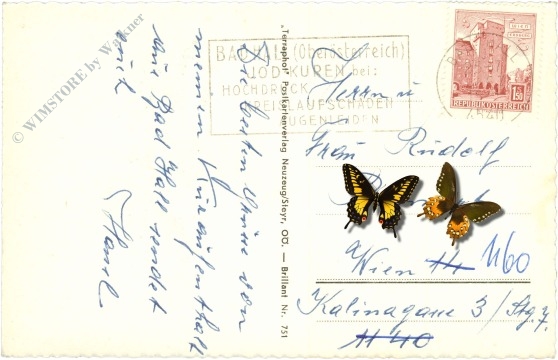 Die besten Grüße von
meinem Kuraufenthalt
aus Bad Hall sendet
euch
Hansl
"Terraphot" Postkartenverlag Neuzeug/Steyr, OÖ. — Brillant Nr. 751
BAD HALL (Oberösterreich)
JODKUREN bei:
HOCHDRUCK
KREISLAUFSCHÄDEN
AUGENLEIDEN
WIEN
1.50
REPUBLIK ÖSTERREICH
Herrn u
Frau Rudolf
Wien 1160
Kalinagasse 3/Stg. 7
© WIMSTORE by W. Kner